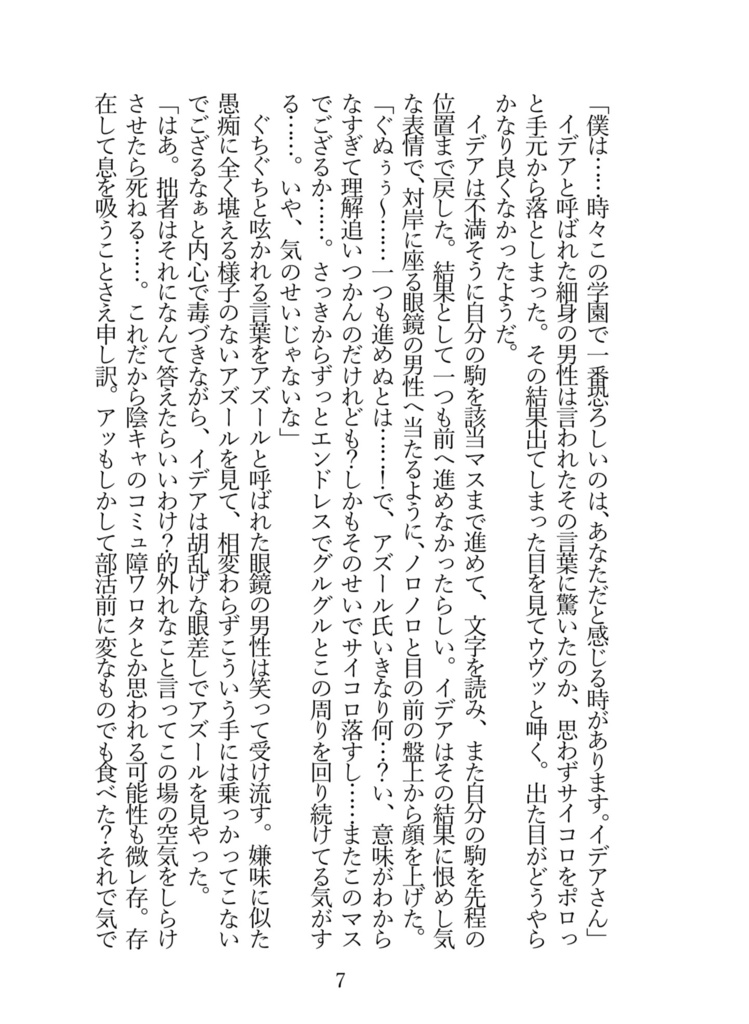 「僕は……時々この学園で一番恐ろしいのは、あなただと感じる時があります。イデアさん」
イデアと呼ばれた細身の男性は言われたその言葉に驚いたのか、思わずサイコロをポロっ
と手元から落としまった。その結果出てしまった目を見てウヴッと呻く。出た目がどうやら
かなり良くなかったようだ。
イデアは不満そうに自分の駒を該当マスまで進めて、文字を読み、また自分の駒を先程の
位置まで戻した。結果として一つも前へ進めなかったらしい。イデアはその結果に恨めし気
な表情で、対岸に座る眼鏡の男性へ当たるように、ノロノロと目の前の盤上から顔を上げた。
「ぐぬぅぅ～……一つも進めぬとは……！で、アズール氏いきなり何…？い、意味がわから
なすぎて理解追いつかんのだけれども？しかもそのせいでサイコロ落すし……またこのマス
でござるか……。さっきからずっとエンドレスでグルグルとこの周りを回り続けてる気がす
る……。いや、気のせいじゃないな」
ぐちぐちと呟かれる言葉をアズールと呼ばれた眼鏡の男性は笑って受け流す。嫌味に似た
愚痴に全く堪える様子のないアズールを見て、相変わらずこういう手には乗っかってこない
でござるなぁと内心で毒づきながら、イデアは胡乱げな眼差しでアズールを見やった。
「はあ。拙者はそれになんて答えたらいいわけ？的外れなこと言ってこの場の空気をしらけ
させたら死ねる……。これだから陰キャのコミュ障ワロタとか思われる可能性も微レ存。存
在して息を吸うことさえ申し訳。アッもしかして部活前に変なものでも食べた？それで気で
7